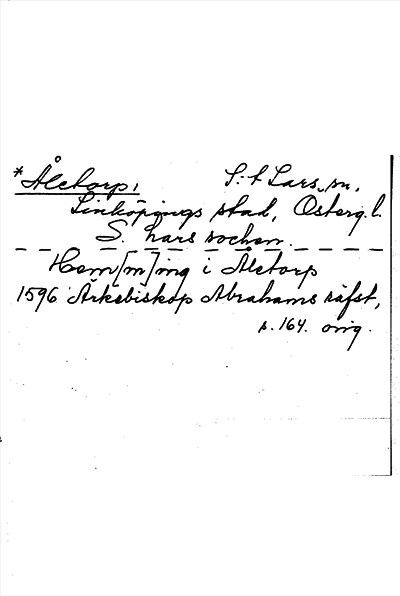 *Åletorp, S:t Lars sn,
Linköpings stad, Österg. l.
S. Lars socken.
Hem[m]ing i Åletorp
1596 Ärkebiskop Abrahams räfst,
s. 164. orig.